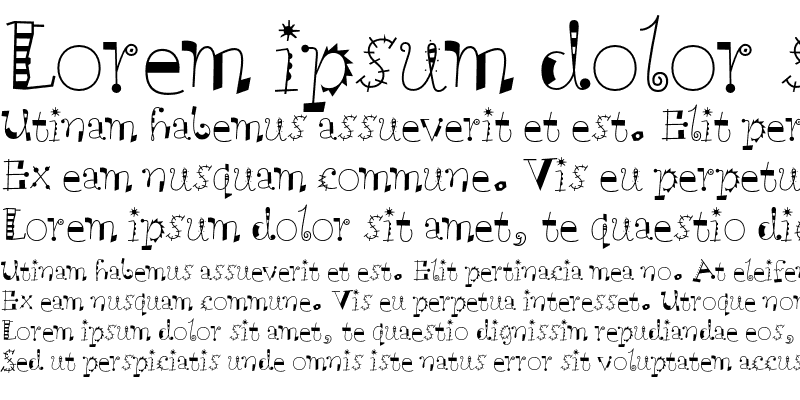 Lorem ipsum dolor s
Utinam habemus assueverit et est. Elit per
Ex eam nusquam commune. Vis eu perpetu
Lorem ipsum dolor sit amet, te quaestio di
Utinam habemus assueverit et est. Elit pertinacia mea no. At eleifen
Ex eam nusquam commune. Vis eu perpetua interesset. Utroque no
Lorem ipsum dolor sit amet, te quaestio dignissim repudiandae eos,
Sed ut perspiciatis unde omnis iste natus error sit voluptatem accus